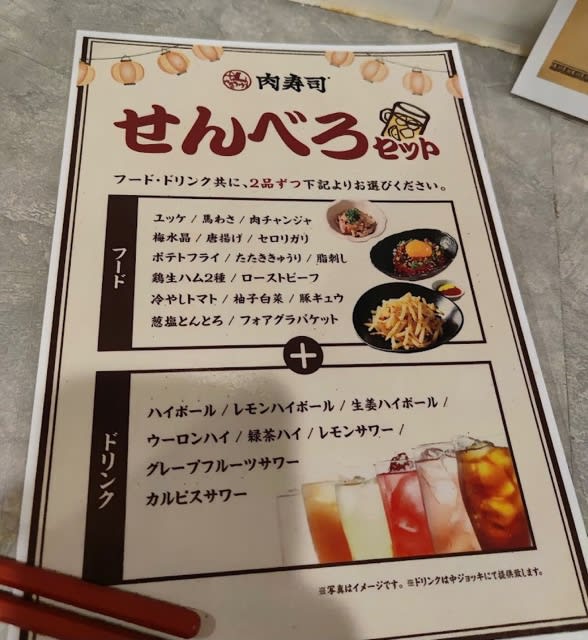 肉寿司
せんべろセット
フード・ドリンク共に、2品ずつ下記よりお選びください。
フード
ユッケ / 馬わさ / 肉チャンジャ
梅水晶 / 唐揚げ / セロリガリ
ポテトフライ / たたききゅうり / 脂刺し
鶏生ハム2種 / ローストビーフ
冷やしトマト / 柚子白菜 / 豚キュウ
葱塩とんとろ / フォアグラバケット
+
ドリンク
ハイボール / レモンハイボール / 生姜ハイボール /
ウーロンハイ / 緑茶ハイ / レモンサワー /
グレープフルーツサワー
カルピスサワー
※写真はイメージです。※ドリンクは中ジョッキにて提供致します。